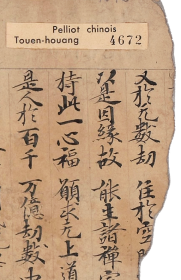 Pelliot chinois
Touen-houang 4672
又於无數劫 住於空
以是因緣故 能生諸禪
持此一心福 願求无上道
是人於百千 万億劫數中